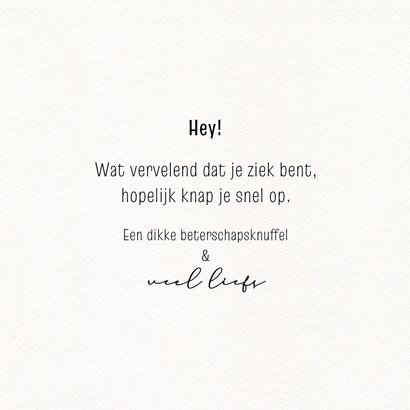 Hey!
Wat vervelend dat je ziek bent,
hopelijk knap je snel op.
Een dikke beterschapsknuffel
&
veel liefs